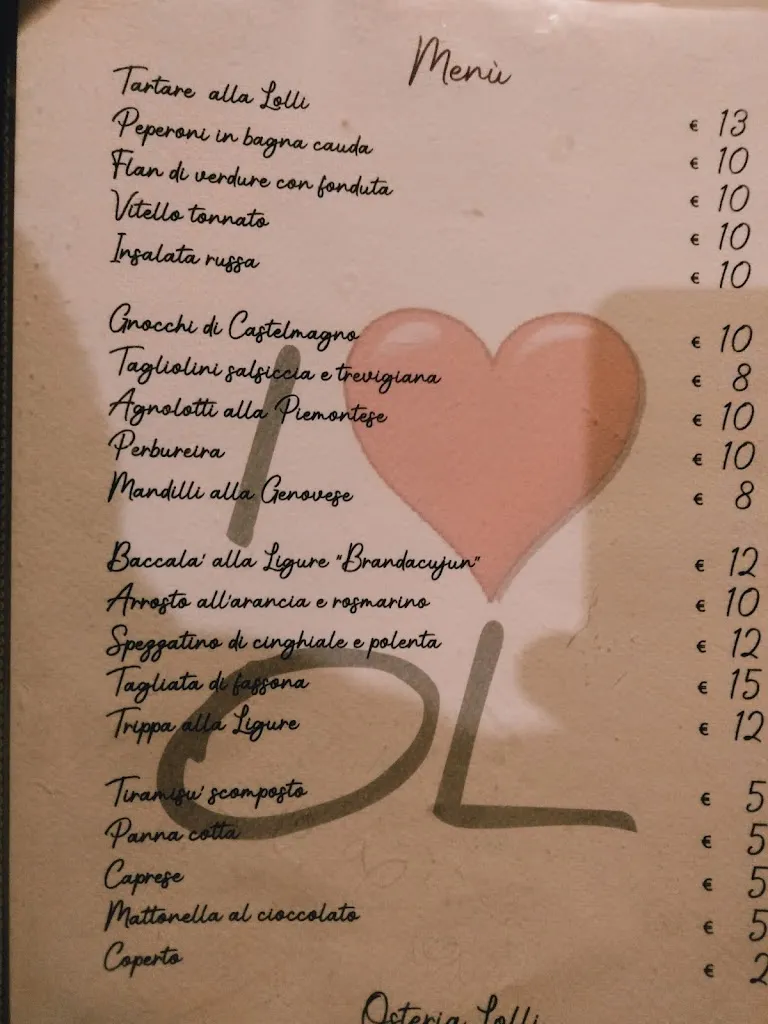 Menù
Tartare alla Lolli € 13
Peperoni in bagna cauda € 10
Flan di verdure con fonduta € 10
Vitello tonnato € 10
Insalata russa € 10
Gnocchi di Castelmagno € 10
Tagliolini salsiccia e trevigiana € 8
Agnolotti alla Piemontese € 10
Perbureira € 10
Mandilli alla Genovese € 8
Baccala' alla Ligure "Brandacujun" € 12
Arrosto all'arancia e rosmarino € 10
Spezzatino di cinghiale e polenta € 12
Tagliata di fassona € 15
Trippa alla Ligure € 12
Tiramisu' scomposto € 5
Panna cotta € 5
Caprese € 5
Mattonella al cioccolato € 5
Coperto € 2
Osteria Lolli
I
OL